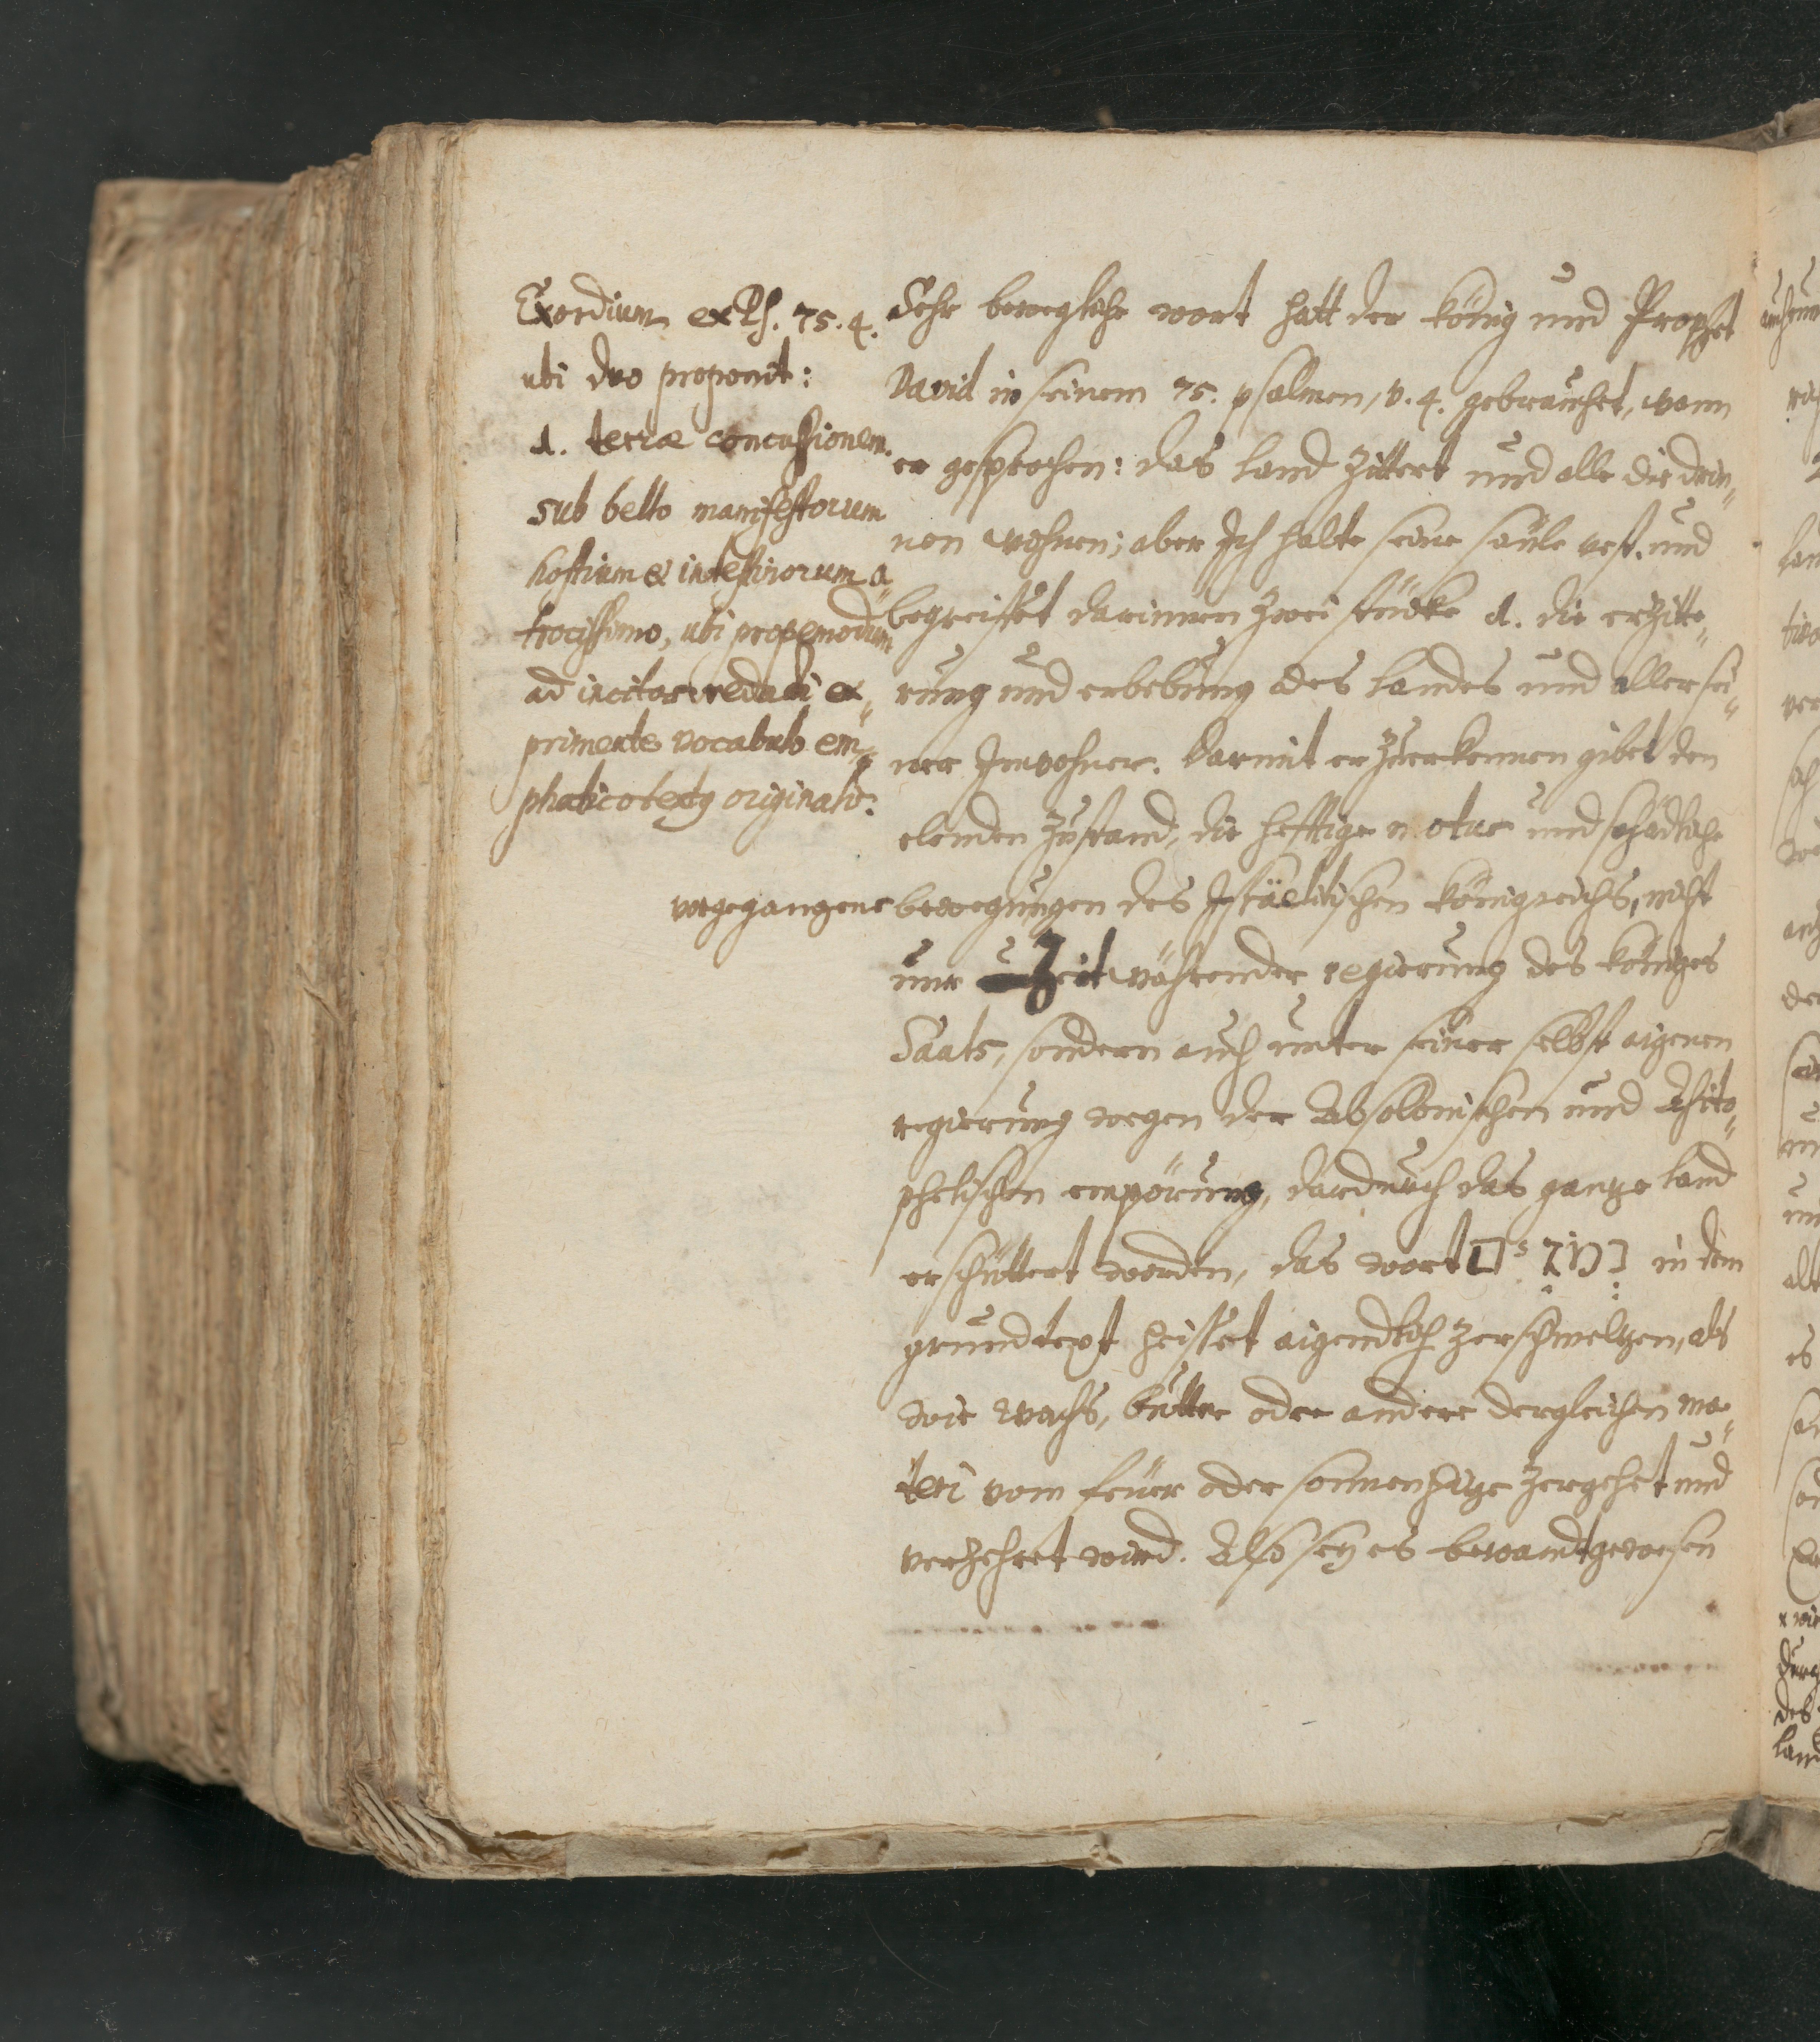 Exordium ex Ps. 75. 4.
ubi duo proponit:
1. terræ concussionem
sub bello manifestorum
hostium & intestinorum a„
trocissimo, ubi propemodum
ad incitas redacti, ex„
primente vocabulo em„
phatico textq originalis:
vorgegangene
Sehr bewegliche wort hatt der König und Prophet
David in seinem 75. psalmen, v. 4. gebrauchet, wann
er gesprochen: das land zittert und alle die drin„
nen wohnen; aber Ich halte seine säule vest. und
begreiffet darinnen zwei stücke 1. die erzitte„
rung und erbebung des landes und aller sei„
ner Inwohner. Darmit er zuerkennen gibet den
elenden zustand, die hefftige motus und schädliche
bewegungen des Israelitischen königreichs, nicht
nur Zeit währender regierung des königes
Sauls, sondern auch unter seiner selbst aigenen
regierung wegen der Absolonischen und Ahito„
phelischen empörung, dardurch das gantze land
erschüttert worden, das wort נמוגים in dem
grundtext heisset aigendtlich zerschmeltzen, als
wie wachs, butter oder andere dergleichen ma„
teri vom feuer oder sonnenhitze zergehet und
verzehret wird. Also sey es bewandt gewesen